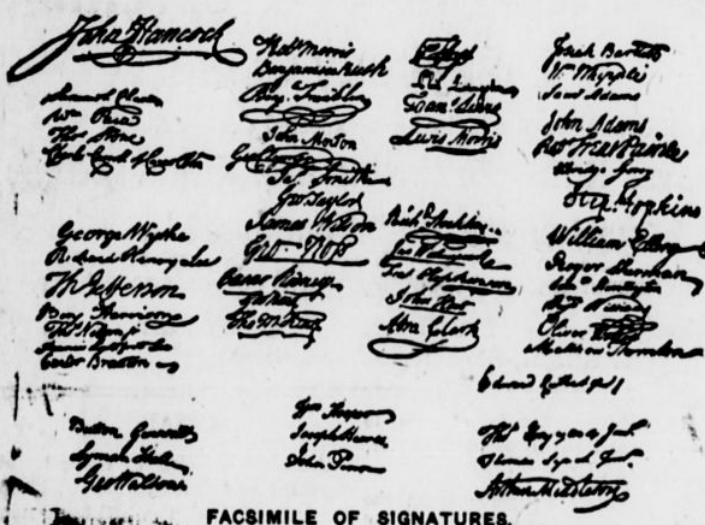 John Hancock
Samuel Chase
Wm Paca
Thos Stone
Charles Carroll of Carrollton
George Wythe
Richard Henry Lee
Th Jefferson
Benj Harrison
Thos Nelson jr
Francis Lightfoot Lee
Carter Braxton
Button Gwinnett
Lyman Hall
Geo Walton
Robt Morris
Benjamin Rush
Benj. Franklin
John Morton
Geo Clymer
Jas Smith
Geo Taylor
James Wilson
Geo Ross
Caesar Rodney
Geo Read
Tho M:Kean
Wm Hooper
Joseph Hewes
John Penn
Phil. Livingston
Frans. Lewis
Lewis Morris
Richd. Stockton
Jno Witherspoon
Fras. Hopkinson
John Hart
Abra Clark
Josiah Bartlett
Wm Whipple
Saml Adams
John Adams
Robt Treat Paine
Elbridge Gerry
Step. Hopkins
William Ellery
Roger Sherman
Saml Huntington
Wm Williams
Oliver Wolcott
Matthew Thornton
Edward Rutledge
Thos Heyward Junr.
Thomas Lynch Junr.
Arthur Middleton
FACSIMILE OF SIGNATURES.